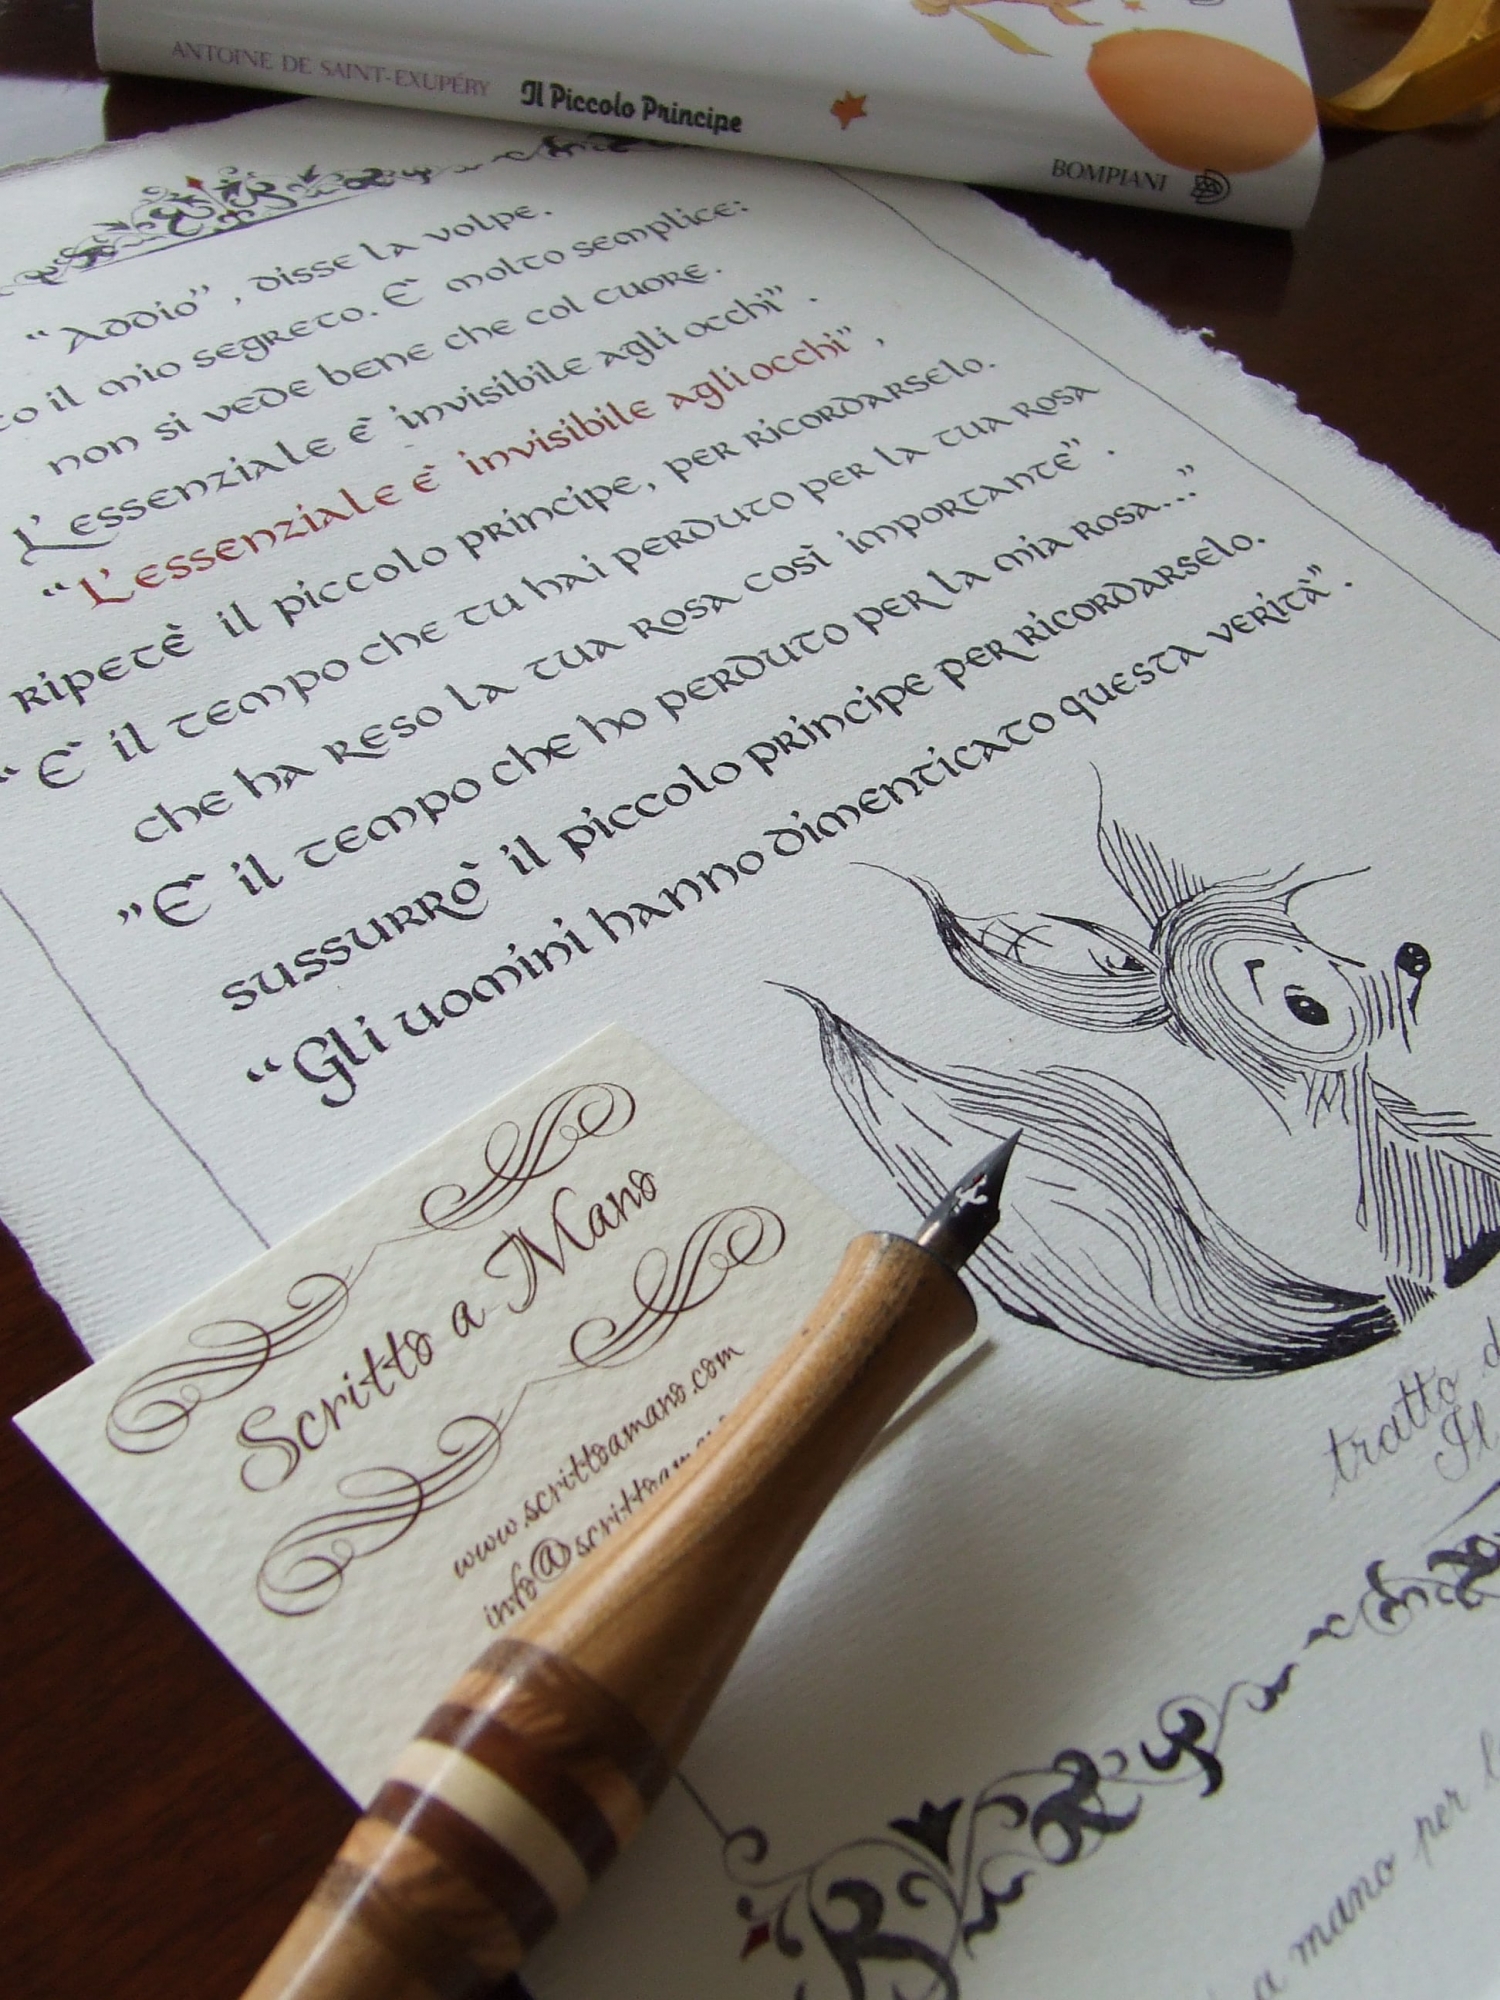 ANTOINE DE SAINT-EXUPÉRY Il Piccolo Principe BOMPIANI
“Addio”, disse la volpe.
il mio segreto. E' molto semplice:
non si vede bene che col cuore.
L'essenziale è invisibile agli occhi”.
“L'essenziale è invisibile agli occhi”,
ripetè il piccolo principe, per ricordarselo.
“E' il tempo che tu hai perduto per la tua rosa
che ha reso la tua rosa così importante”.
”E' il tempo che ho perduto per la mia rosa...”
sussurrò il piccolo principe per ricordarselo.
“Gli uomini hanno dimenticato questa verità”.
Scritto a Mano
www.scrittoamano.com
info@
tratto
Il
a mano per